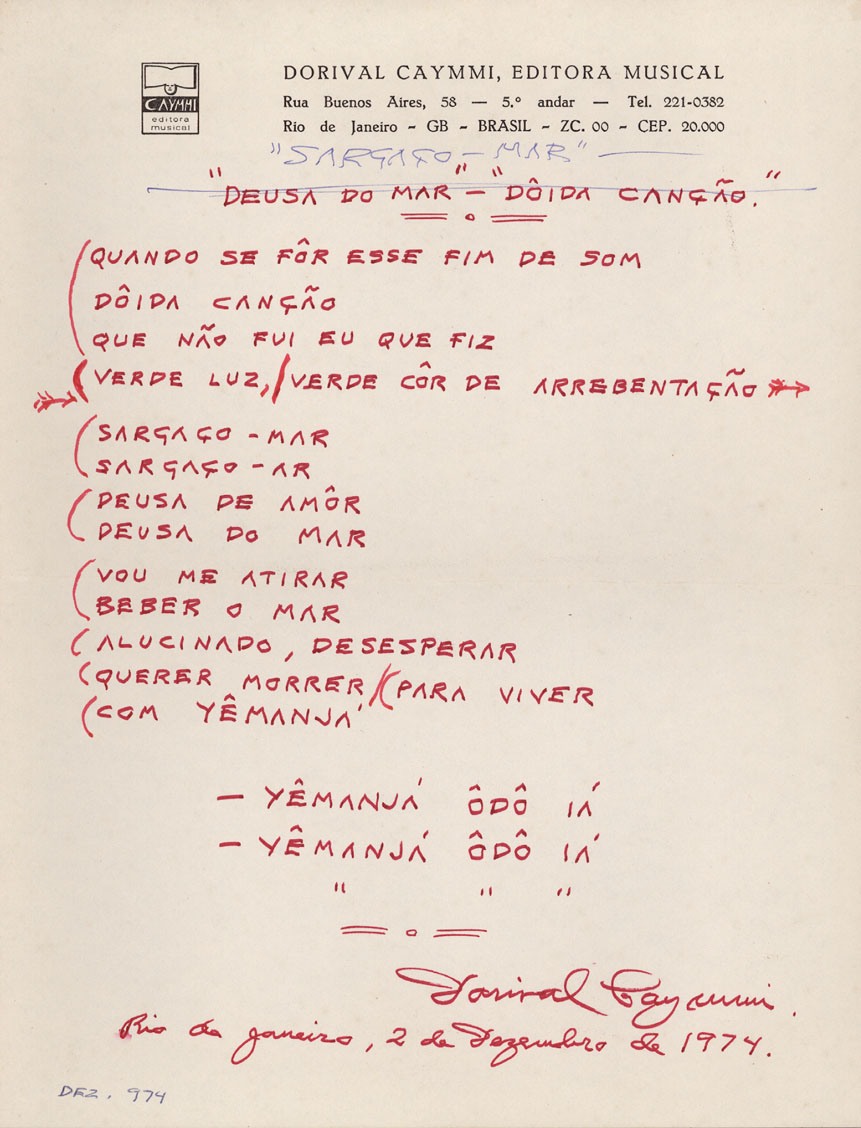 CAYMMI
editora
musical
DORIVAL CAYMMI, EDITORA MUSICAL
Rua Buenos Aires, 58 — 5.º andar — Tel. 221-0382
Rio de Janeiro - GB - BRASIL - ZC. 00 - CEP. 20.000
"SARGAÇO-MAR"
"DEUSA DO MAR" - "DÔIDA CANÇÃO."
QUANDO SE FÔR ESSE FIM DE SOM
DÔIDA CANÇÃO
QUE NÃO FUI EU QUE FIZ
(VERDE LUZ,/VERDE CÔR DE ARREBENTAÇÃO
SARGAÇO-MAR
SARGAÇO-AR
DEUSA DE AMÔR
DEUSA DO MAR
VOU ME ATIRAR
BEBER O MAR
(ALUCINADO, DESESPERAR
(QUERER MORRER/(PARA VIVER
(COM YÊMANJÁ
— YÊMANJÁ ÔDÔ IÁ
— YÊMANJÁ ÔDÔ IÁ
" " "
Dorival Caymmi.
Rio de Janeiro, 2 de Dezembro de 1974.
DEZ. 974